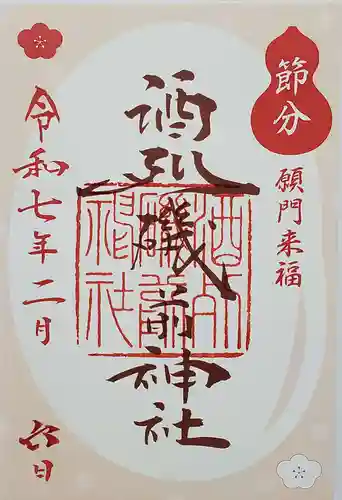 節分
願門来福
酒列磯前神社
令和七年二月六日
酒列磯前神社